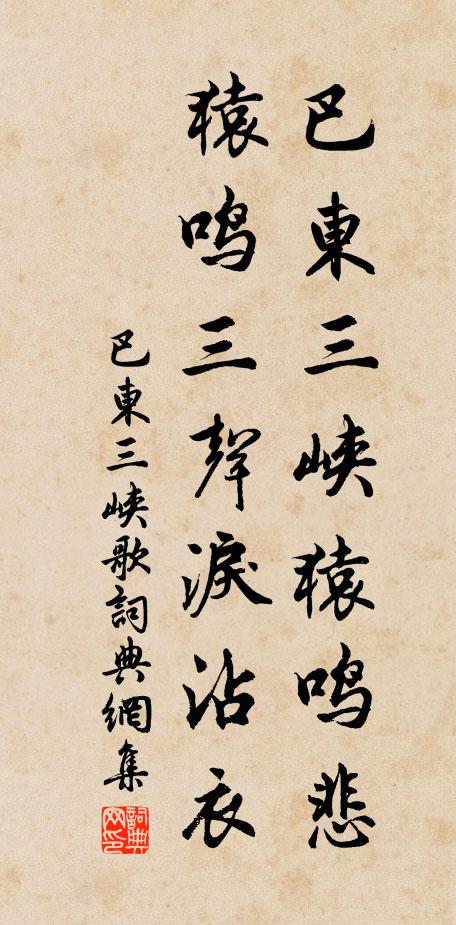 巴東三峽猿鳴悲
猿鳴三聲淚沾衣
巴東三峽歌詞典網集
詞典
网印